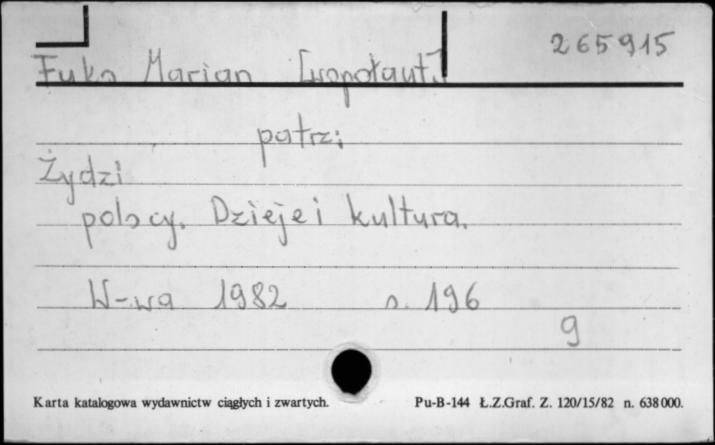 265915
Fuks Marian [współaut.]
patrz:
Żydzi
polscy. Dzieje i kultura.
W-wa 1982 s. 196
g
Karta katalogowa wydawnictw ciągłych i zwartych. Pu-B-144 Ł.Z.Graf. Z. 120/15/82 n. 638000.